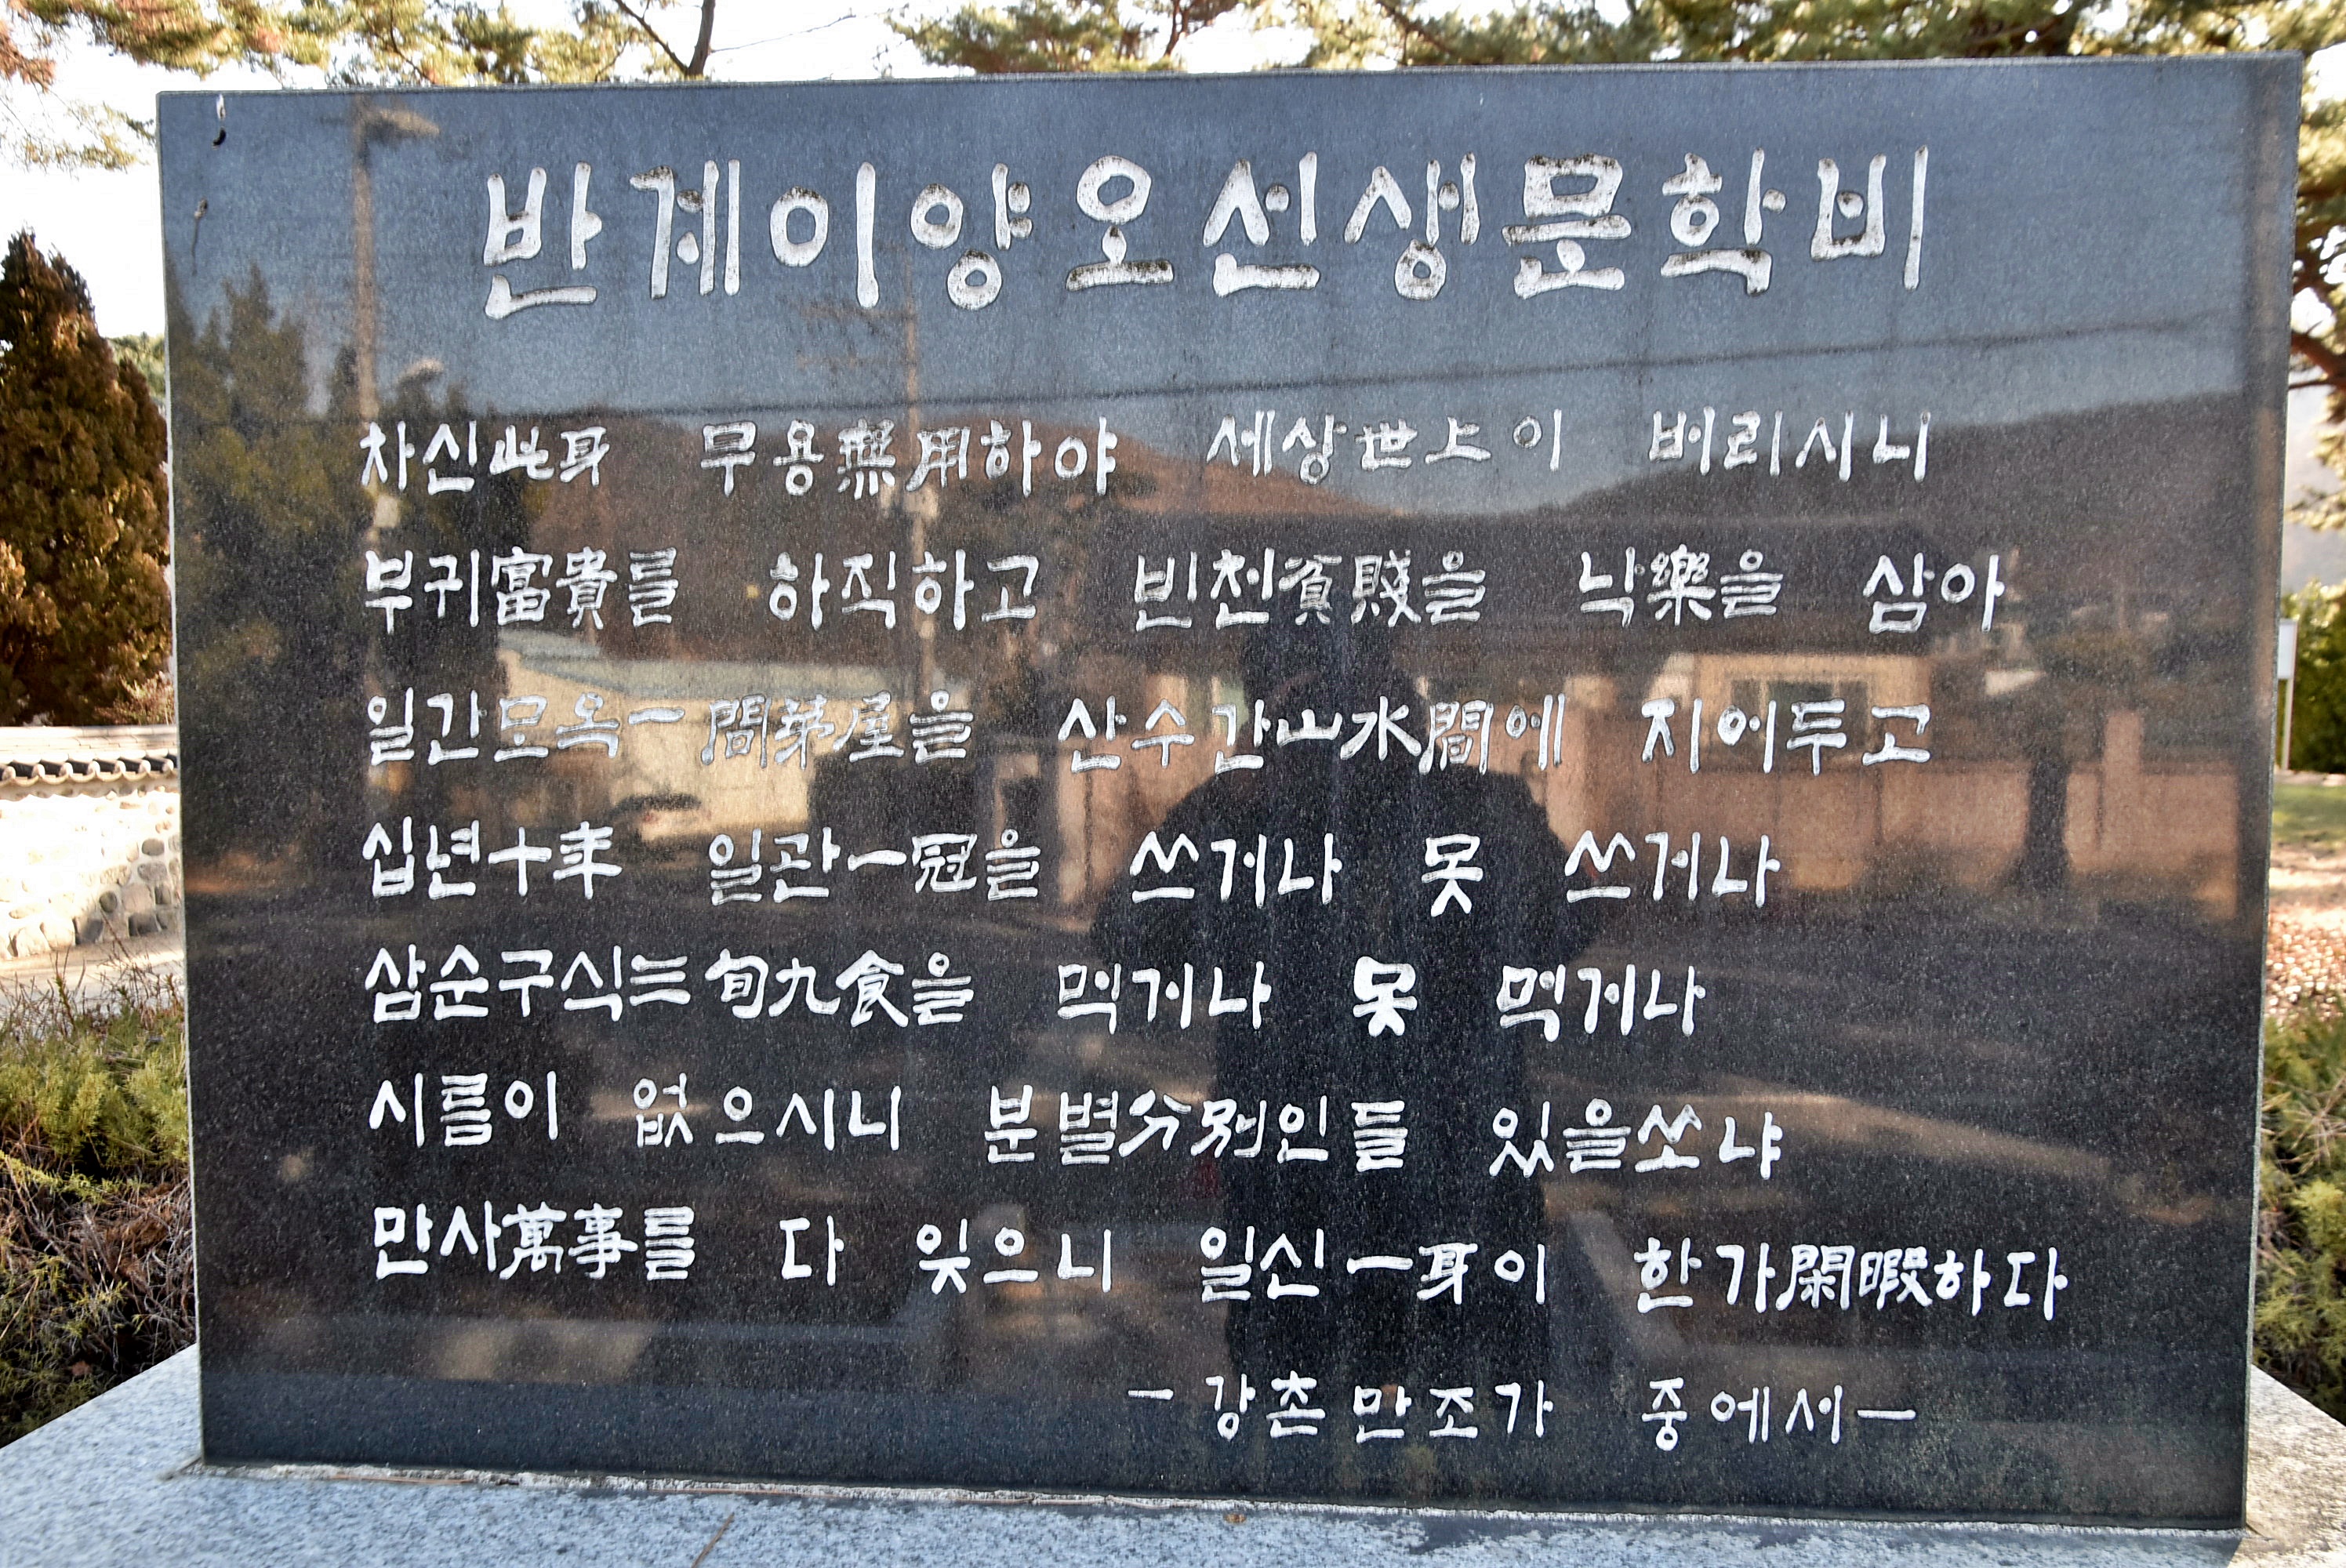 반계이양오선생문학비
차신此身 무용無用하야 세상世上이 버리시니
부귀富貴를 하직하고 빈천貧賤을 낙樂을 삼아
일간모옥一間茅屋을 산수간山水間에 지어두고
십년十年 일관一冠을 쓰거나 못 쓰거나
삼순구식三旬九食을 먹거나 못 먹거나
시름이 없으시니 분별分別인들 있을쏘냐
만사萬事를 다 잊으니 일신一身이 한가閑暇하다
- 강촌만조가 중에서 -